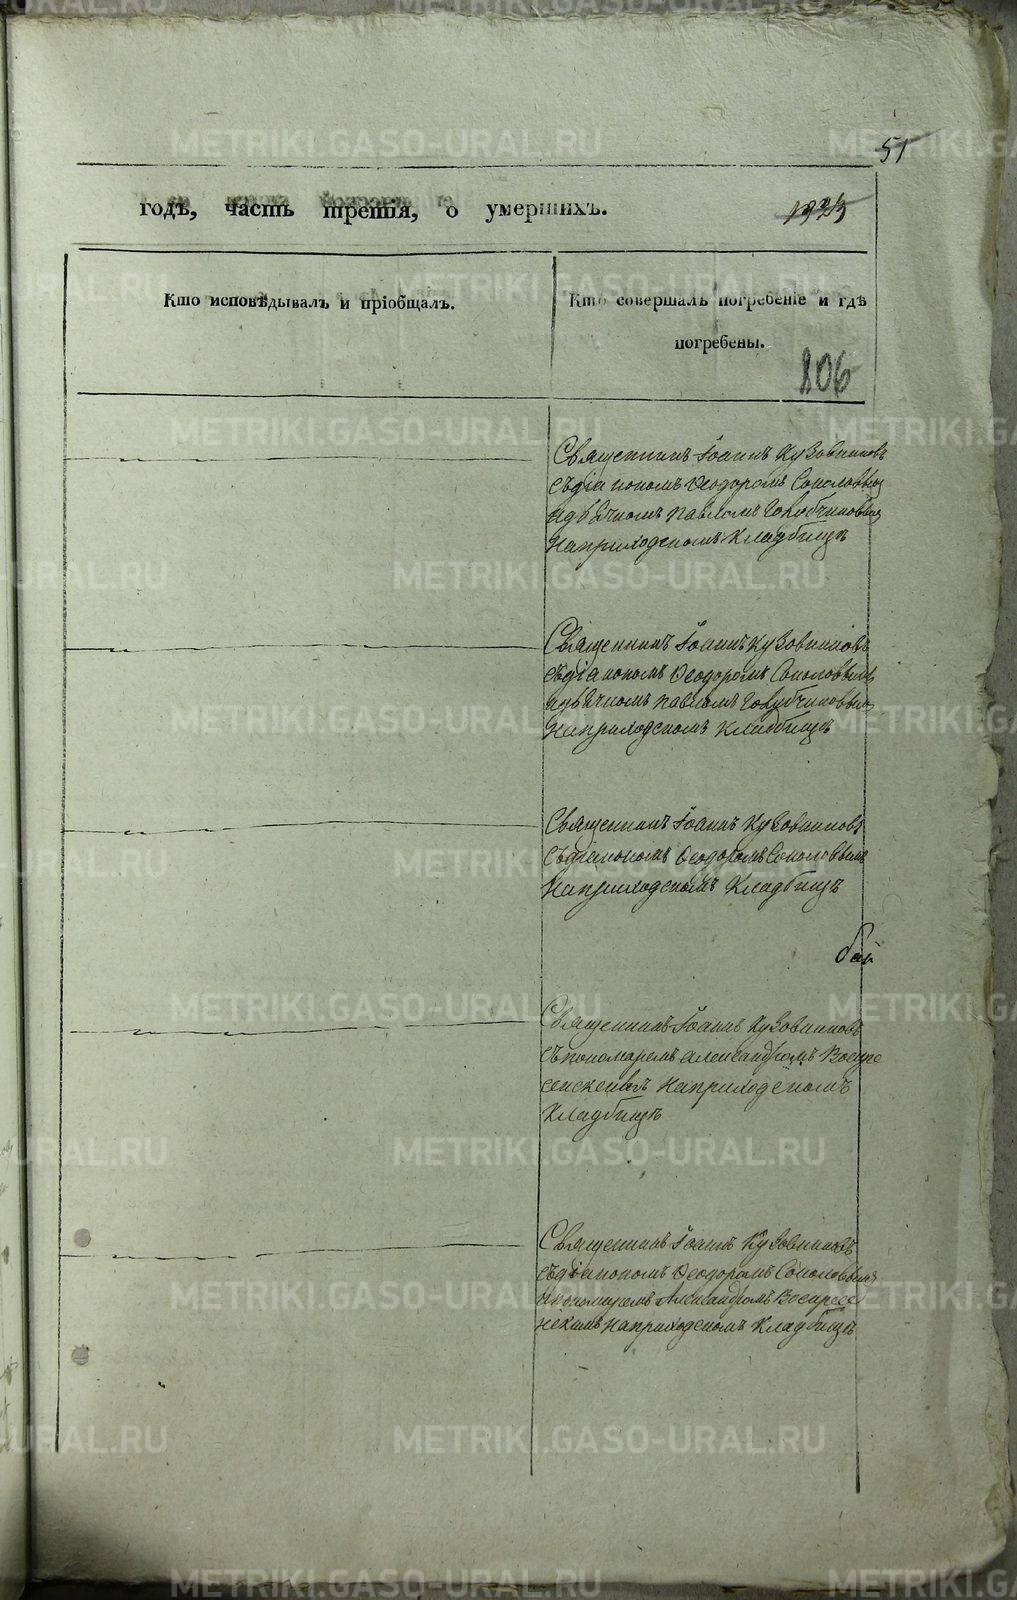 51
годъ, часть третія, о умершихъ.
1925
Кто исповѣдывалъ и пріобщалъ.
Кто совершалъ погребеніе и гдѣ
погребены.
806
Священникъ Іоаннъ Кузовниковъ
съ діакономъ Ѳеодоромъ Соколовым
и дьячкомъ Павломъ Голубчиковым
на приходскомъ кладбищѣ
Священникъ Іоаннъ Кузовниковъ
съ діакономъ Ѳеодоромъ Соколовым
и дьячкомъ Павломъ Голубчиковым
на приходскомъ кладбищѣ
Священникъ Іоаннъ Кузовниковъ
съ діакономъ Ѳеодоромъ Соколовым
на приходскомъ кладбищѣ
Священникъ Іоаннъ Кузовниковъ
съ пономаремъ Александромъ Воскре
сенскимъ на приходскомъ
кладбищѣ
Священникъ Іоаннъ Кузовниковъ
съ діакономъ Ѳеодоромъ Соколовым
и пономаремъ Александромъ Воскресе
нскимъ на приходскомъ кладбищѣ
METRIKI.GASO-URAL.RU